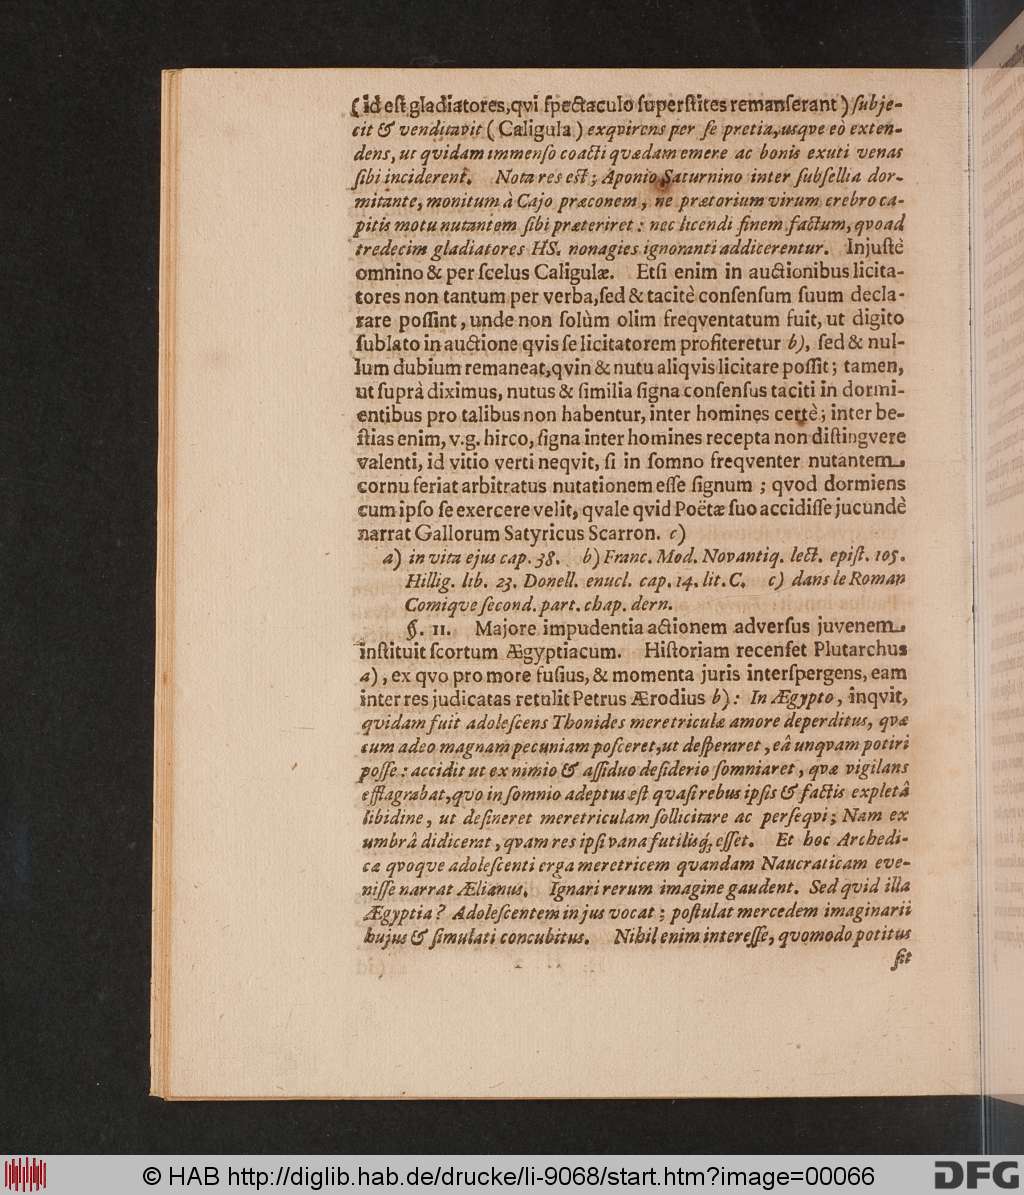 (id eſt gladiatores, qvi ſpectaculo ſuperſtites remanſerant) ſubje-
cit & venditavit (Caligula) exqvirens per ſe pretia, usqve eò exten-
dens, ut qvidam immenſo coacti qvædam emere ac bonis exuti venas
ſibi inciderent. Nota res eſt; Aponio Saturnino inter ſubſellia dor-
mitante, monitum à Cajo præconem, ne prætorium virum crebro ca-
pitis motu nutantem ſibi præteriret: nec licendi finem factum, qvoad
tredecim gladiatores HS. nonagies ignoranti addicerentur. Injuſtè
omnino & per ſcelus Caligulæ. Etſi enim in auctionibus licita-
tores non tantum per verba, ſed & tacitè conſenſum ſuum decla-
rare poſſint, unde non ſolùm olim freqventatum fuit, ut digito
ſublato in auctione qvis ſe licitatorem profiteretur b), ſed & nul-
lum dubium remaneat, qvin & nutu aliqvis licitare poſſit; tamen,
ut ſuprà diximus, nutus & ſimilia ſigna conſenſus taciti in dormi-
entibus pro talibus non habentur, inter homines certè; inter be-
ſtias enim, v.g. hirco, ſigna inter homines recepta non diſtingvere
valenti, id vitio verti neqvit, ſi in ſomno freqventer nutantem
cornu feriat arbitratus nutationem eſſe ſignum; qvod dormiens
cum ipſo ſe exercere velit, qvale qvid Poëtæ ſuo accidiſſe jucundè
narrat Gallorum Satyricus Scarron. c)
a) in vita ejus cap. 38. b) Franc. Mod. Novantiq. lect. epiſt. 105.
Hillig. lib. 23. Donell. enucl. cap. 14. lit. C. c) dans le Roman
Comique ſecond. part. chap. dern.
§. 11. Majore impudentia actionem adverſus juvenem
inſtituit ſcortum Ægyptiacum. Hiſtoriam recenſet Plutarchus
a), ex qvo pro more fuſius, & momenta juris interſpergens, eam
inter res judicatas retulit Petrus Ærodius b): In Ægypto, inqvit,
quidam fuit adoleſcens Thonides meretriculæ amore deperditus, qvæ
cum adeo magnam pecuniam poſceret, ut deſperaret, eâ unqvam potiri
poſſe: accidit ut ex nimio & aſſiduo deſiderio ſomniaret, qvæ vigilans
efflagrabat, qvo in ſomnio adeptus eſt quaſi rebus ipſis & factis expletâ
libidine, ut deſineret meretriculam ſollicitare ac perſeqvi; Nam ex
umbrâ didicerat, qvam res ipſi vana futilisq́; eſſet. Et hoc Archedi-
cæ qvoqve adoleſcenti erga meretricem quandam Naucraticam eve-
niſſe narrat Ælianus. Ignari rerum imagine gaudent. Sed qvid illa
Ægyptia? Adoleſcentem in jus vocat; poſtulat mercedem imaginarii
hujus & ſimulati concubitus. Nihil enim intereſſe, quomodo potitus
ſit
© HAB http://diglib.hab.de/drucke/li-9068/start.htm?image=00066
DFG